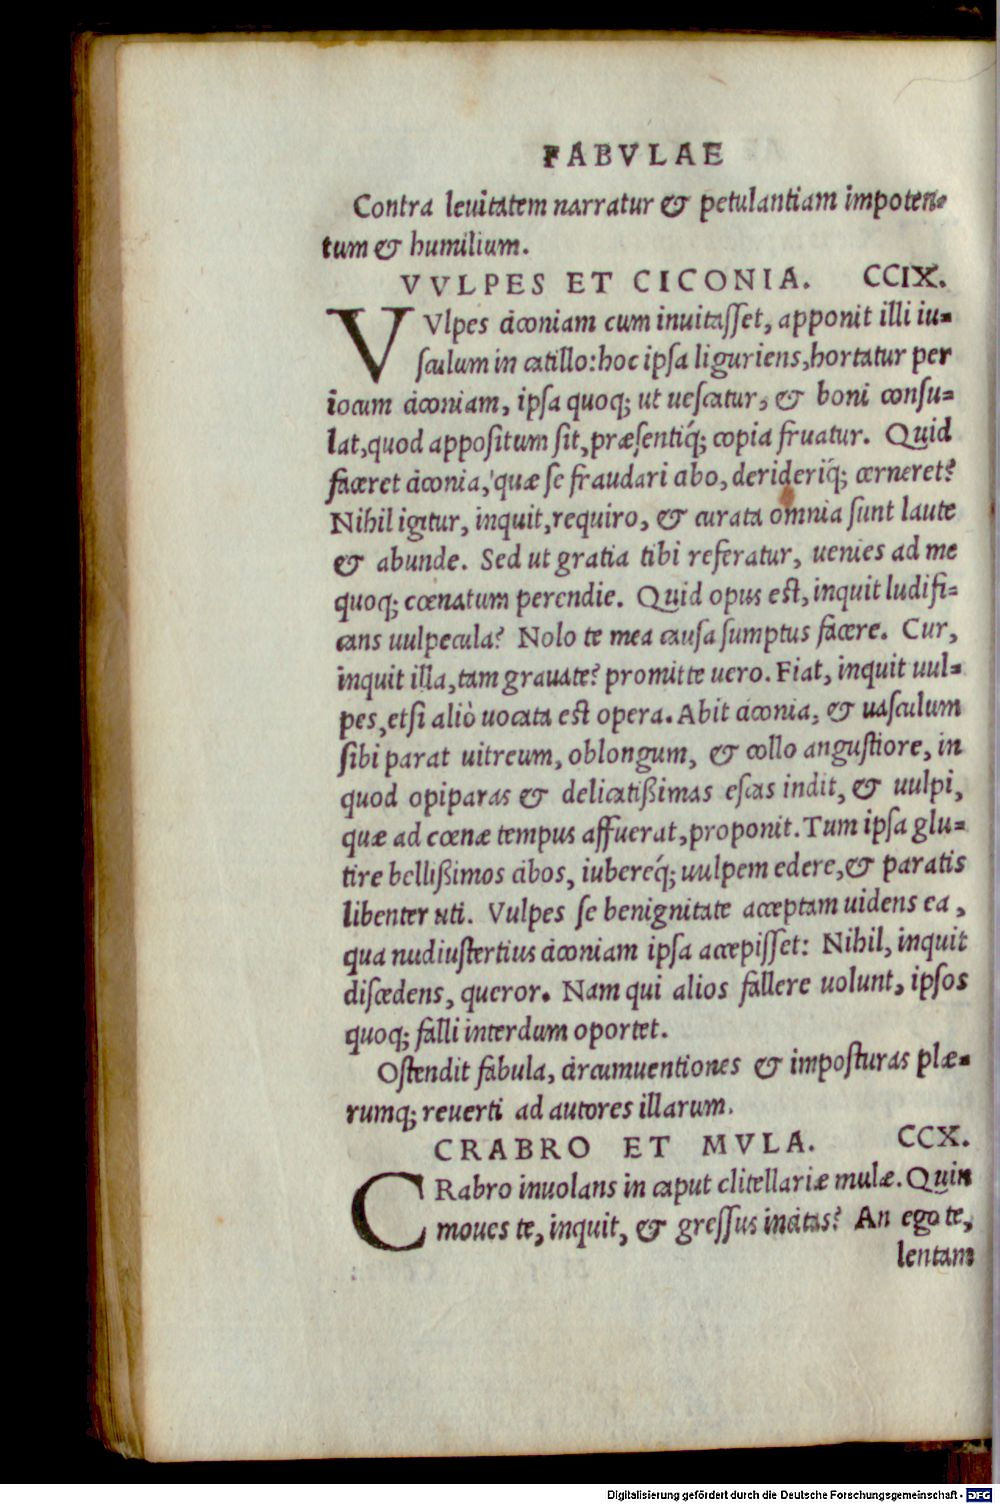 FABVLAE
Contra leuitatem narratur & petulantiam impoten-
tum & humilium.
VVLPES ET CICONIA. CCIX.
VVlpes ciconiam cum inuitasset, apponit illi iu-
sculum in catillo: hoc ipsa liguriens, hortatur per
iocum ciconiam, ipsa quoq; ut uescatur, & boni consu-
lat, quod appositum sit, præsentiq́; copia fruatur. Quid
faceret ciconia, quæ se fraudari cibo, deridériq́; cerneret?
Nihil igitur, inquit, requiro, & curata omnia sunt laute
& abunde. Sed ut gratia tibi referatur, uenies ad me
quoq; cœnatum perendie. Quid opus est, inquit ludifi-
cans uulpecula? Nolo te mea causa sumptus facere. Cur,
inquit illa, tam grauate? promitte uero. Fiat, inquit uul-
pes, etsi aliò uocata est opera. Abit ciconia, & uasculum
sibi parat uitreum, oblongum, & collo angustiore, in
quod opiparas & delicatißimas escas indit, & uulpi,
quæ ad cœnæ tempus affuerat, proponit. Tum ipsa glu-
tire bellißimos cibos, iubereq́; uulpem edere, & paratis
libenter uti. Vulpes se benignitate acceptam uidens ea,
qua nudiustertius ciconiam ipsa accepisset: Nihil, inquit
discedens, queror. Nam qui alios fallere uolunt, ipsos
quoq; falli interdum oportet.
Ostendit fabula, circumuentiones & imposturas plæ-
rumq; reuerti ad autores illarum.
CRABRO ET MVLA. CCX.
CRabro inuolans in caput clitellariæ mulæ. Quin
moues te, inquit, & gressus incitas? An ego te,
lentam
Digitalisierung gefördert durch die Deutsche Forschungsgemeinschaft - DFG